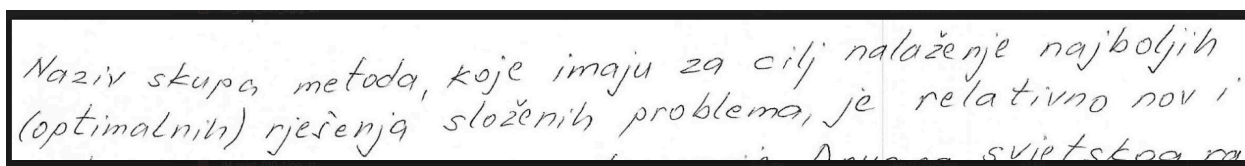 Naziv skupa metoda, koje imaju za cilj nalaženje najboljih
(optimalnih) rješenja složenih problema, je relativno nov i
svjetskog